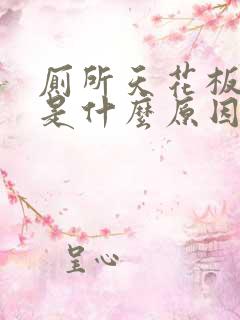 廁所天花板
是什麼原因
呈心